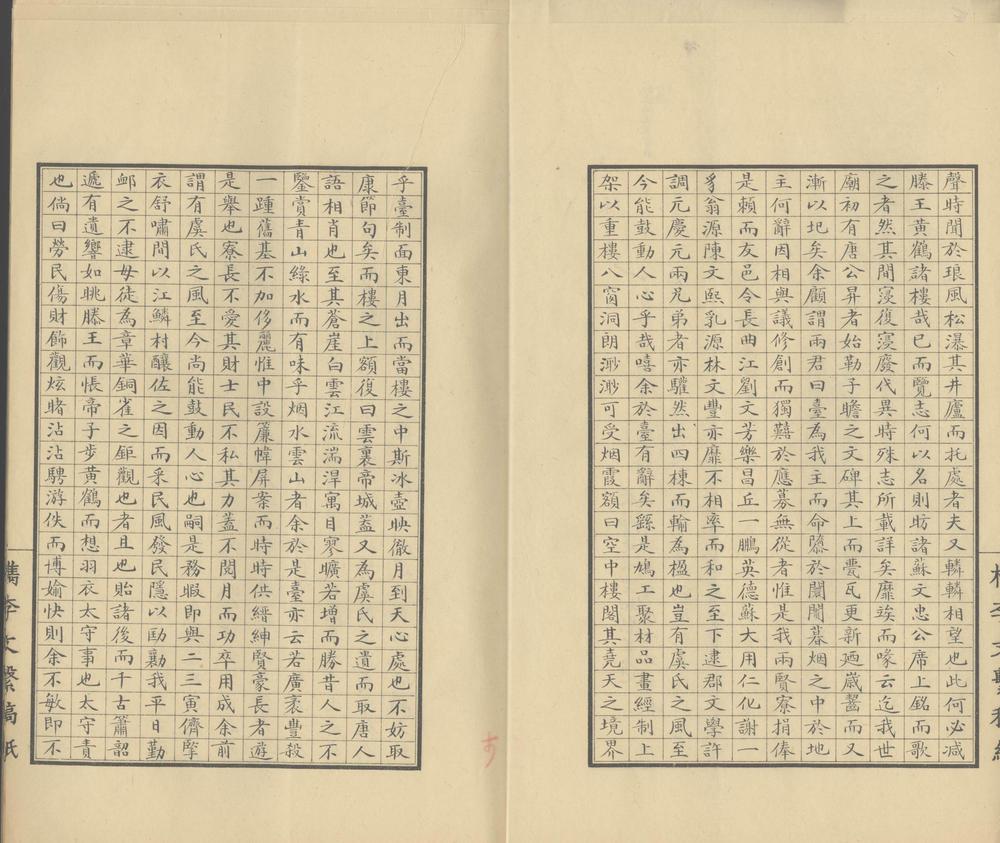 聲時聞於琅風松瀑其井廬而托處者夫又轔轔相望也此何必减
滕王黃鶴諸樓哉已而覽志何以名則昉諸蘇文忠公席上銘而歌
之者然其間寖復寖廢代異時殊志所載詳矣靡誒而喙云迄我世
廟初有唐公昇者始勒子瞻之文碑其上而甃瓦更新廼歲齾而又
漸以圮矣余顧謂兩君曰臺為我主而命騐於闤闠暮烟之中於地
主何辭因相與議修創而獨囏於應募無從者惟是我兩賢寮捐俸
是賴而友邑令長曲江劉文芳樂昌丘一鵬英德蘇大用仁化謝一
豸翁源陳文熙乳源林文豐亦靡不相率而和之至下逮郡文學許
調元慶元兩兄弟者亦驩然出四棟而輸為楹也豈有虞氏之風至
今能鼓動人心乎哉嘻余於臺有辭矣繇是鳩工聚材品畫經制上
架以重樓八窗洞朗渺渺可受烟霞額曰空中樓閣其堯天之境界
乎臺制面東月出而當樓之中斯冰壺映徹月到天心處也不妨取
康節句矣而樓之上額復曰雲裏帝城蓋又為虞氏之遺而取唐人
語相肖也至其蒼崖白雲江流湍澼寓目寥曠若增而勝昔人之不
鑒賞青山綠水而有味乎烟水雲山者余於是臺亦云若廣袤豐殺
一踵舊基不加侈麗惟中設簾幃屏案而時時供縉紳賢豪長者遊
是舉也寮長不愛其財士民不私其力蓋不閱月而功卒用成余前
謂有虞氏之風至今尚能鼓動人心也嗣是務暇即與二三寅儕擥
衣舒嘯問以江鱗村釀佐之因而采民風發民隱以劻勷我平日勤
卹之不逮毋徒為章華銅雀之鉅觀也者且也貽諸後而千古簫韶
遞有遺響如眺滕王而悵帝子步黃鶴而想羽衣太守事也太守責
也倘曰勞民傷財飾觀炫睹沾沾騁游佚而博婾快則余不敏即不
檇李文繫稿紙